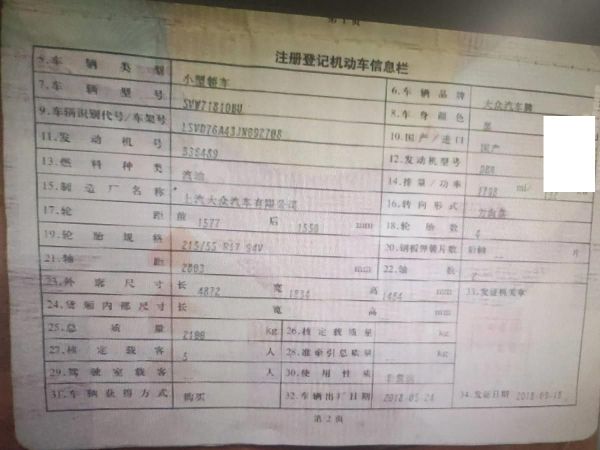 第1页
注册登记机动车信息栏
5.车辆类型 小型轿车 6.车辆品牌 大众汽车牌
7.车辆型号 8.车身颜色 黑
9.车辆识别代号/车架号 10.国产/进口 国产
11.发动机号 12.发动机型号
13.燃料种类 汽油 14.排量/功率 ml/
15.制造厂名称 上汽大众汽车有限公司 16.转向形式 方向盘
17.轮距 前 1577 后 1550 mm 18.轮胎数 4
19.轮胎规格 215/55 R17 94V 20.钢板弹簧片数 后轴 片
21.轴距 2803 mm 22.轴数 2
23.外廓尺寸 长 4872 宽 1834 高 1484 mm 33.发证机关章
24.货厢内部尺寸 长 宽 高 mm
25.总质量 2100 kg 26.核定载质量 kg
27.核定载客 5 人 28.准牵引总质量 kg
29.驾驶室载客 人 30.使用性质 非营运
31.车辆获得方式 购买 32.车辆出厂日期 2018-05-24 34.发证日期
第2页